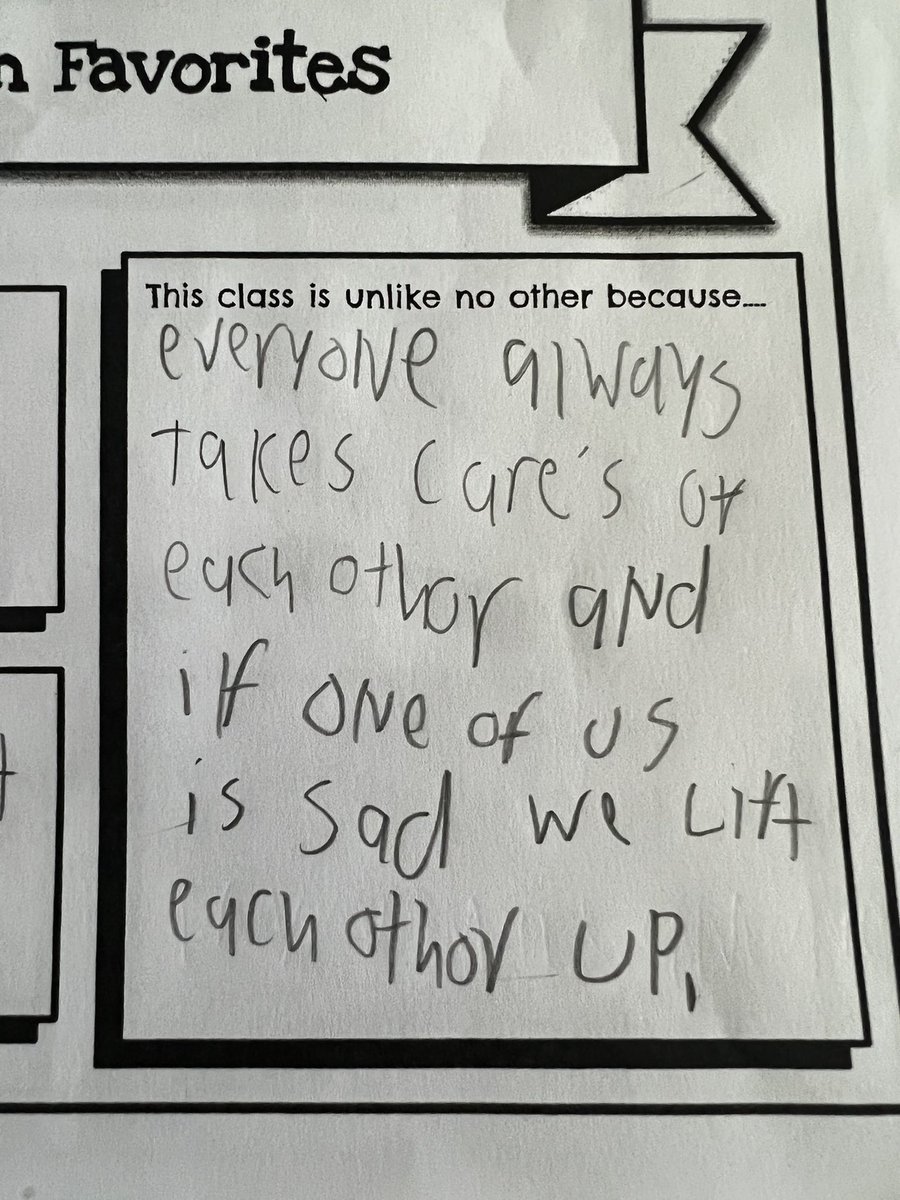 n Favorites
This class is unlike no other because....
everyone always
takes care's of
each othor and
if one of us
is sad we Lift
each othor UP,